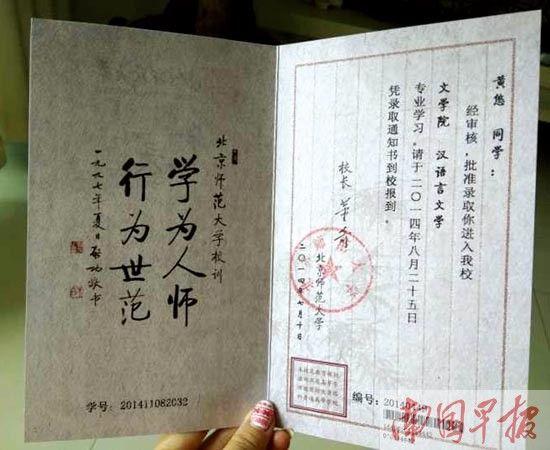 北京师范大学校训
学为人师
行为世范
一九九七年夏日 启功敬书
学号:201411082032
黄悠 同学:
经审核,批准录取你进入我校
文学院 汉语言文学
专业学习。请于二〇一四年八月二十五日
凭录取通知书到校报到。
校长 董奇
北京师范大学
二〇一四年七月十日
编号:
南国早报